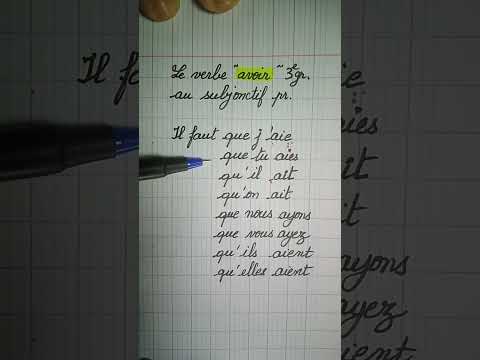 Le verbe "avoir" 3e gr.
au subjonctif pr.
Il faut que j'aie
que tu aies
qu'il ait
qu'on ait
que nous ayons
que vous ayez
qu'ils aient
qu'elles aient